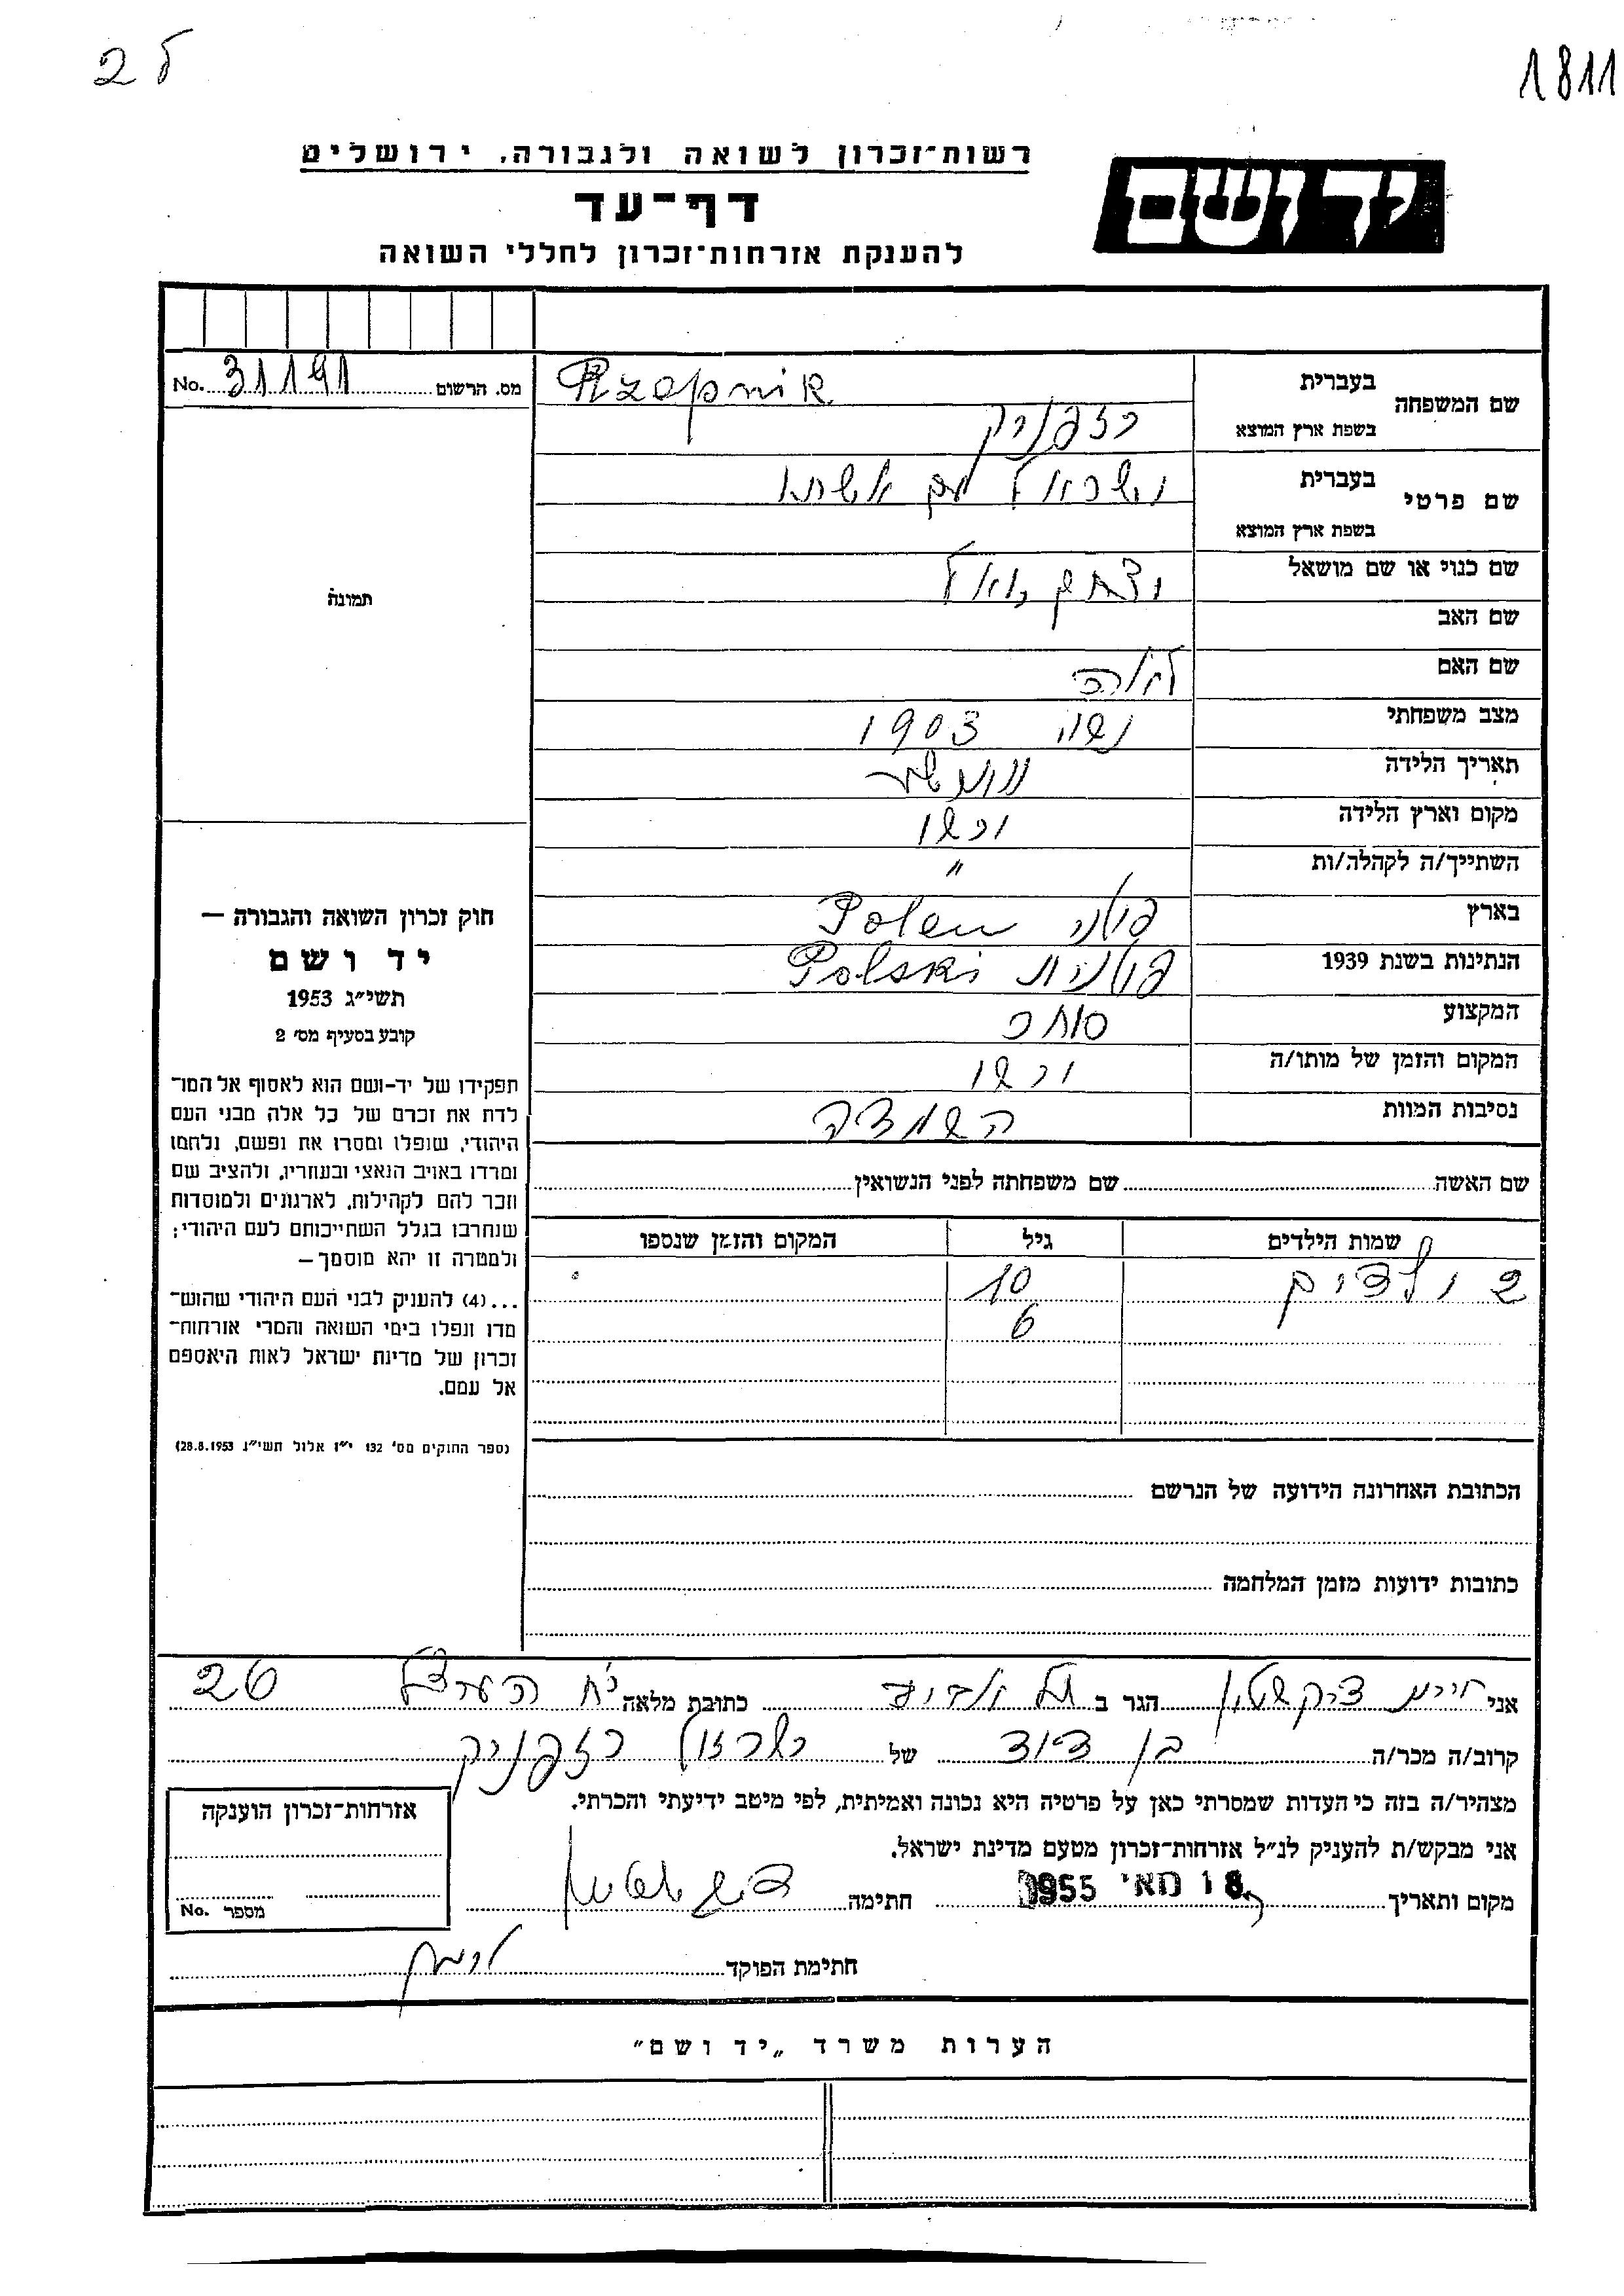 2 ל
1811
יד ושם
רשות־זכרון לשואה ולגבורה, ירושלים
דף־עד
להענקת אזרחות־זכרון לחללי השואה
מס. הרשום No. 31191
שם המשפחה בעברית Rzepnik
בשפת ארץ המוצא רזפניק
שם פרטי בעברית ישראל עם אשתו
בשפת ארץ המוצא
שם כנוי או שם מושאל
שם האב
שם האם
מצב משפחתי נשוי 1903
תאריך הלידה
מקום וארץ הלידה ורשו
השתייך/ה לקהלה/ות "
בארץ פולני Polen
הנתינות בשנת 1939 פולנית Polski
המקצוע סוחר
המקום והזמן של מותו/ה ורשו
נסיבות המוות השמדה
תמונה
חוק זכרון השואה והגבורה —
יד ושם
תשי״ג 1953
קובע בסעיף מס׳ 2
תפקידו של יד-ושם הוא לאסוף אל המו־
לדת את זכרם של כל אלה מבני העם
היהודי, שנפלו ומסרו את נפשם, נלחמו
ומרדו באויב הנאצי ובעוזריו, ולהציב שם
וזכר להם לקהילות, לארגונים ולמוסדות
שנחרבו בגלל השתייכותם לעם היהודי;
ולמטרה זו יהא מוסמך—
...(4) להעניק לבני העם היהודי שהוש־
מדו ונפלו בימי השואה והמרי אזרחות־
זכרון של מדינת ישראל לאות היאספם
אל עמם.
(ספר החוקים מס׳ 132 י״ז אלול תשי״ג 28.8.1953)
שם האשה שם משפחתה לפני הנשואין
שמות הילדים גיל המקום והזמן שנספו
2 ילדים 10
6
הכתובת האחרונה הידועה של הנרשם
כתובות ידועות מזמן המלחמה
אני חיים הגר ב תל אביב כתובת מלאה 26
קרוב/ה מכר/ה בן דוד של ישראל רזפניק
מצהיר/ה בזה כי העדות שמסרתי כאן על פרטיה היא נכונה ואמיתית, לפי מיטב ידיעתי והכרתי.
אני מבקש/ת להעניק לנ״ל אזרחות־זכרון מטעם מדינת ישראל.
מקום ותאריך 18 מאי 1955 חתימה
חתימת הפוקד
אזרחות־זכרון הוענקה
מספר No.
הערות משרד „יד ושם״